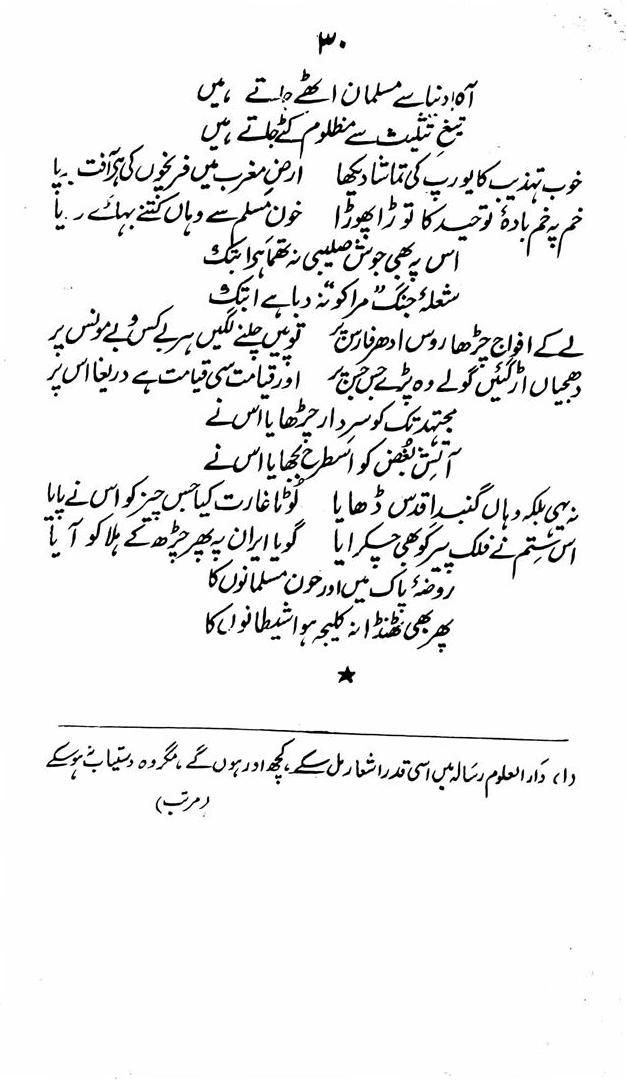 ۳۰
آہ! دنیا سے مسلمان اٹھے جاتے ہیں
تیغِ تثلیث سے مظلوم کٹے جاتے ہیں
خوب تہذیب کا یورپ کی تماشا دیکھا ارضِ مغرب میں فریخوں کی ہی آفت بپا
خم پہ خم بادۂ توحید کا توڑا پھوڑا خونِ مسلم سے وہاں کتنے بہائے دریا
اس پہ بھی جوشِ صلیبی نہ تھما ہرا بتک
شعلۂ جنگ "مراکو" نہ دبا ہے ابتک
لے کے افواج چڑھا روس ادھر فارس پر توپیں چلنے لگیں ہر بے کس و بے مونس پر
دھجیاں اڑ گئیں گولے وہ پڑے جس جس پر اور قیامت سی قیامت ہے دریغا اس پر
مجتہد تک کو سرِدار چڑھایا اس نے
آتشِ بغض کو اسطرح بجھایا اس نے
نہ یہی بلکہ وہاں گنبدِ اقدس ڈھایا لوٹا غارت کیا جس چیز کو اس نے پایا
اس ستم نے فلکِ پیر کو بھی چکرایا گویا ایران پہ پھر چڑھ کے ہلاکو آیا
روضۂ پاک میں اور خون مسلمانوں کا
پھر بھی ٹھنڈا نہ کلیجہ ہوا شیطانوں کا
★
(۱) دار العلوم رسالہ میں اسی قدر اشعار مل سکے، کچھ اور ہوں گے، مگر وہ دستیاب نہ ہو سکے
(مرتب)